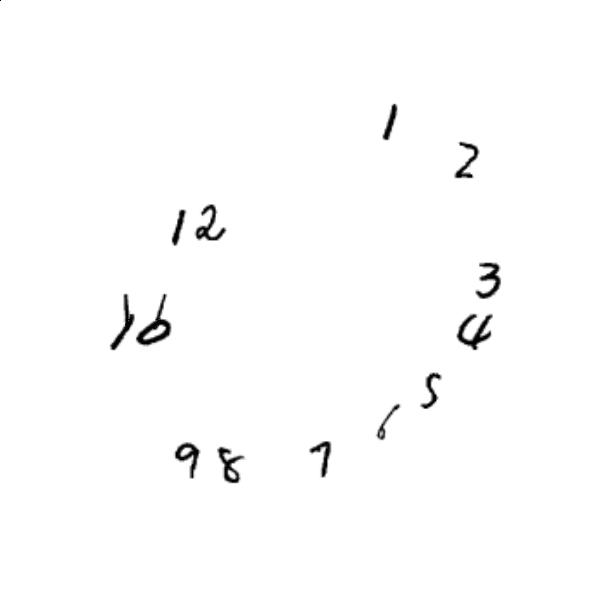 1
2
12
3
10 4
5
6
9 8 7